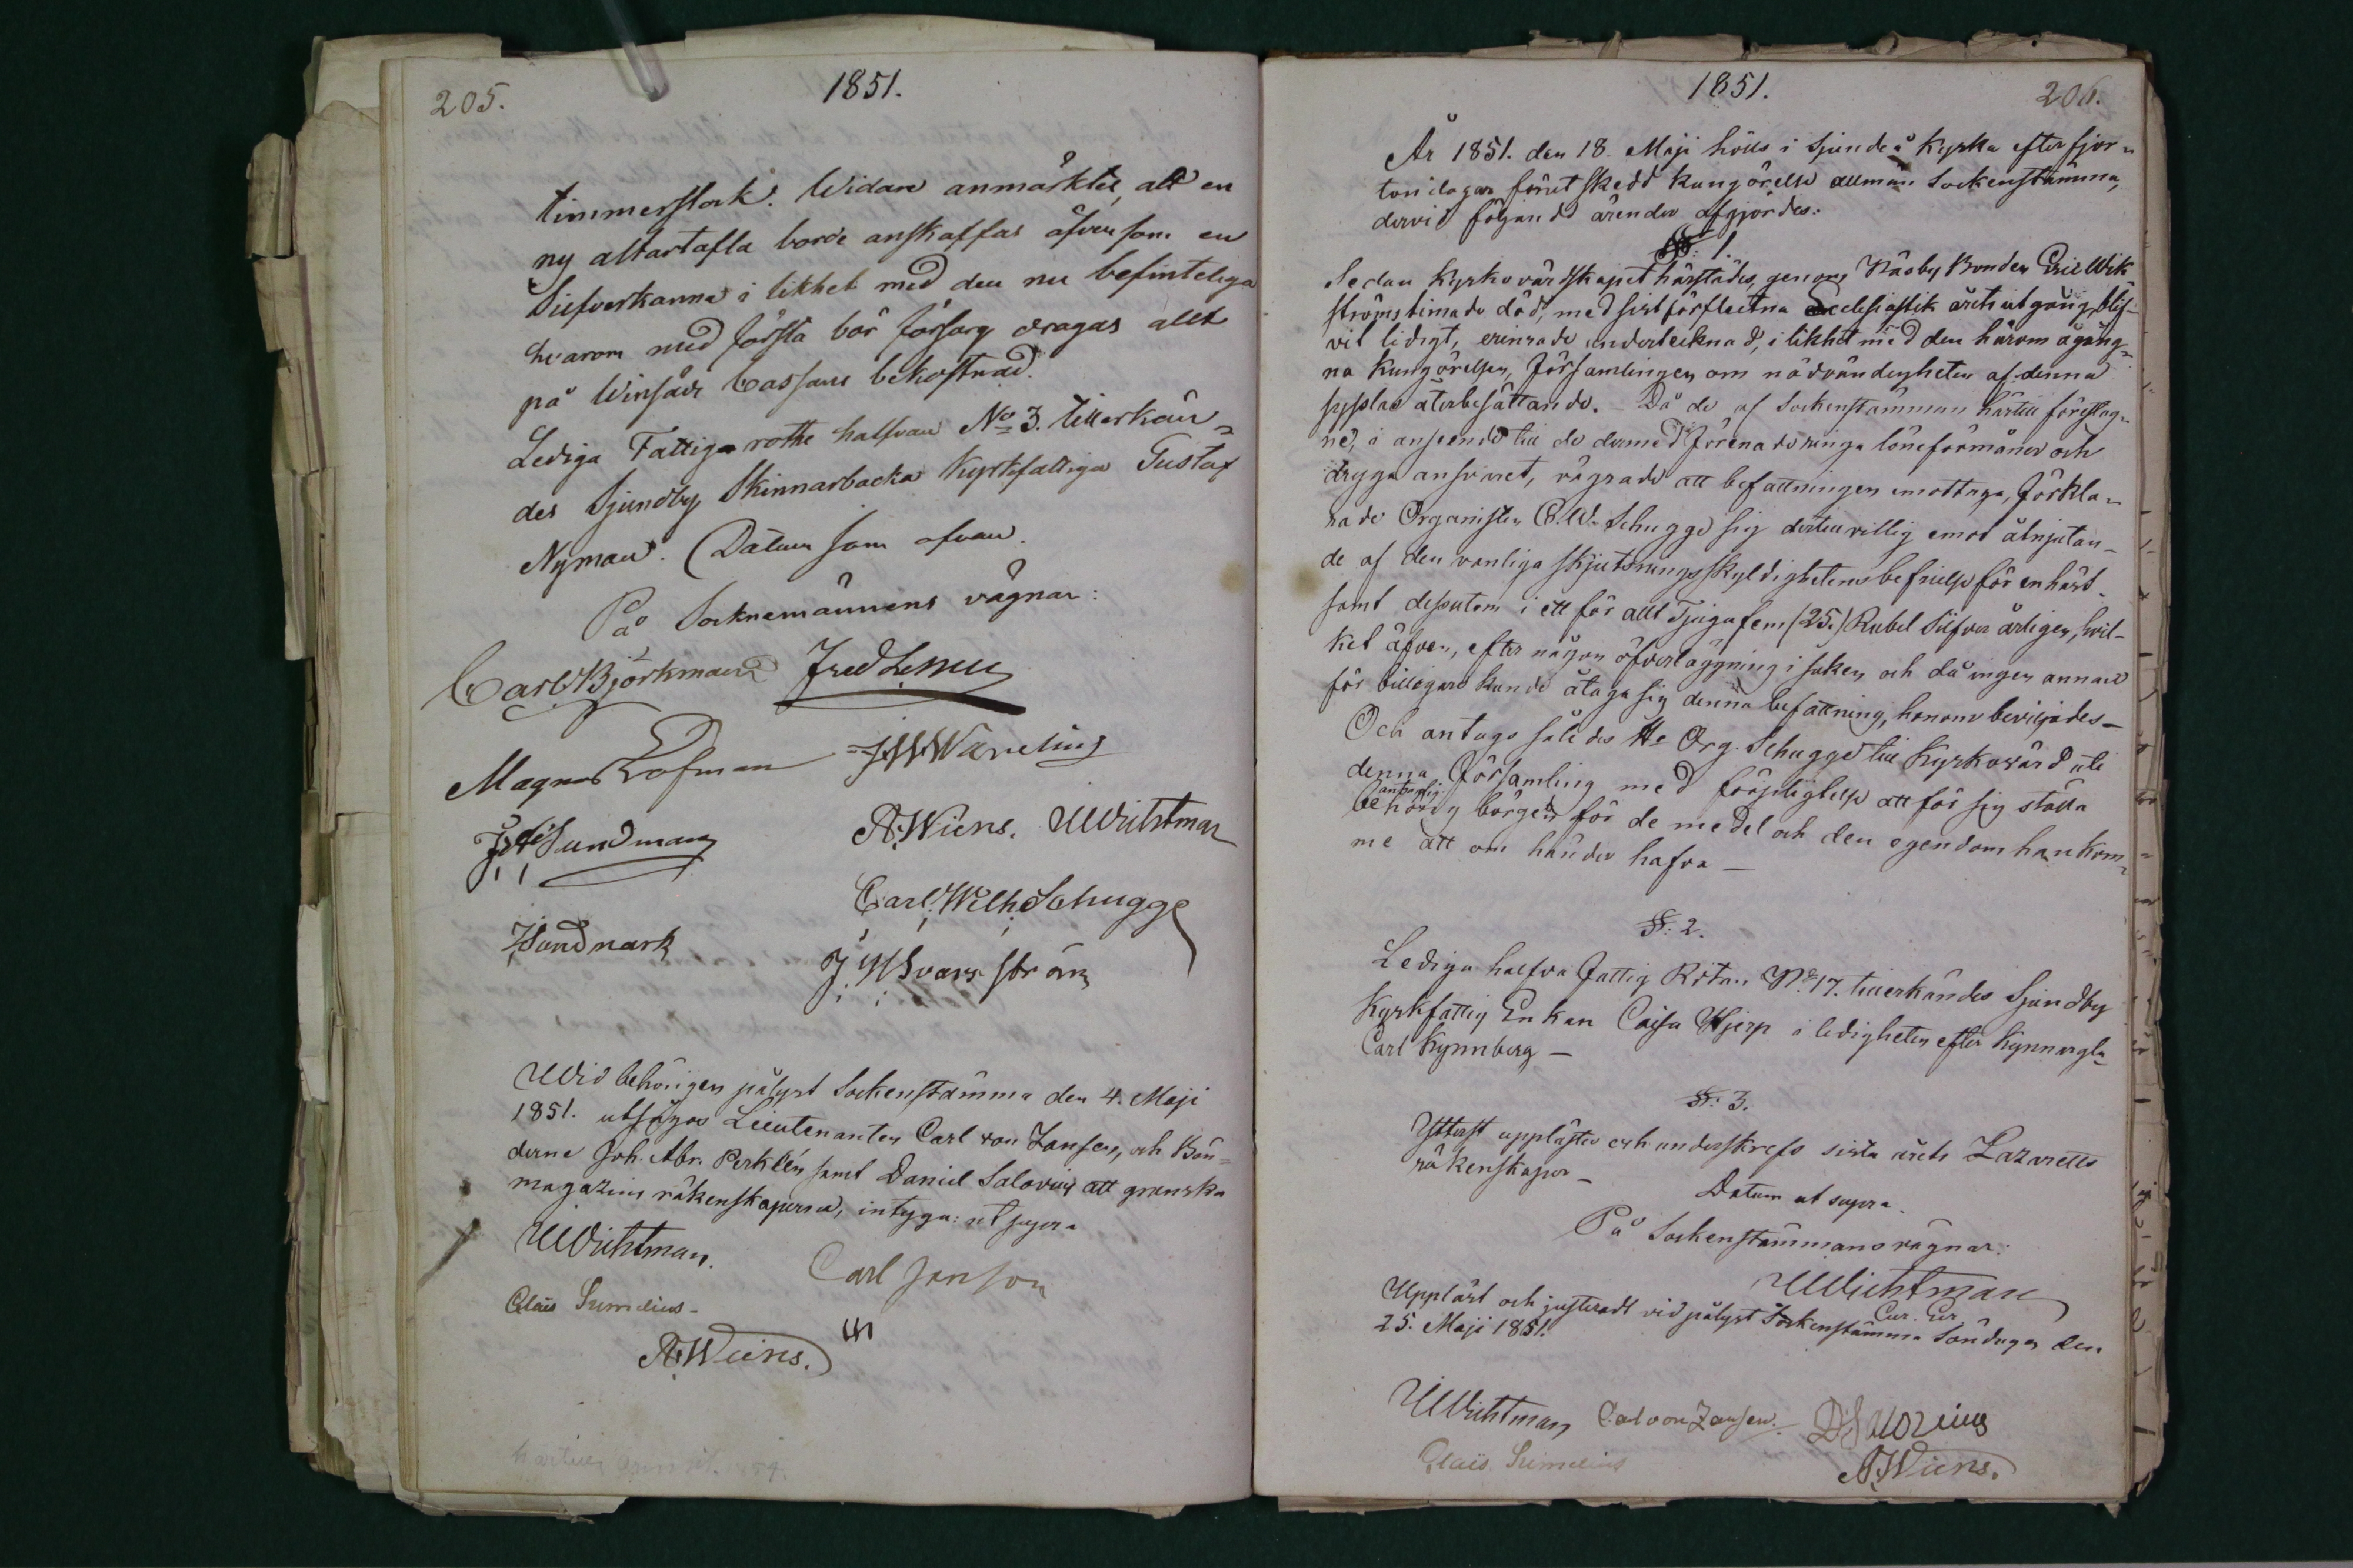 205.
1851.
timmerstock. Widare anmärktes, att en
ny altartafla borde anskaffas äfvensom en
Silfverkanna i likhet med den nu befinteliga
hvarom med första bör försorg dragas allt
på Winsådes Cassans bekostnad.
Lediga Fattiga rothe halfvan No 3. tillerkän-
des Sjundby Skinnarbacka Kyrkfattiga Gustaf
Nyman. Datum som ofvan.
På Socknemännens vägnar:
Carl Björkman Fred Lemu
Magnus Lofman J W Wareling
J Sundman A. Wiens. Wichtman
Carl. Wilh. Schugge
J Sundmark J. W Svarström
Wid behörigen pålyst Sockenstämma den 4. Maji
1851. utsågos Lieutenanten Carl von Zansen, och Bön-
derne Joh. Abr. Perklén samt Daniel Salovius att granska
magazins räkenskaperna, intyga: ut supra
Wichtman.
Carl Janson
Claës Sumelius-
A. Wiens.
1851.
206.
År 1851. den 18. Maji hölls i Sjundeå Kyrka efter fjor-
ton dagar förut skedd kungörelse allmän Sockenstämma,
dervid följande ärender afgjordes:
§: 1.
Sedan Kyrkovärdskapet härstädes, genom Näsby Bonden Eric Wik
ströms timade död, med sist förflutna Ecclesiastik årets utgång, blif-
vit ledigt, erinrade undertecknad, i likhet med den härom ågång-
na kungörelsen, Församlingen om nödvändigheten af denna
sysslas återbesättande. - Då de af Sockenstämman härtill föreslag-
ne, i anseende till de dermed förenade ringa löneförmåner och
dryga ansvaret, vägrade att befattningen emottaga, förkla-
rade Organisten C. W. Schugge sig dertill villig emot åtnjutan-
de af den vanliga skjutsningsskyldighetens befrielse för en häst
samt dessutom i ett för allt Tjugufem (25.) Rubel Silfver årligen, hvil-
ket äfven, efter någon öfverläggning i saken och då ingen annan
för billigare kunde åtaga sig denna befattning, honom beviljades-
Och antogs således Hr Org. Schugge till Kyrkovärd uti
denna Församling med förpligtelse att för sig ställa
antaglig
behörig borgen för de medel och den egendom han kom-
me att om händer hafva -
§: 2.
Lediga halfva Fattig Rotan No 17. tillerkändes Sjundby
Kyrkfattig Enkan Caisa Hjerp i ledigheten efter Kynnargla-
Carl Kynnberg -
§: 3.
Ytterst upplästes och underskrefs sista årets Lazaretts
räkenskaper -
Datum ut supra.
På Sockenstämmans vägnar:
Wichtman
Cur. Ger
Uppläst och justeradt vid pålyst Sockenstämma Söndagen den
25. Maji 1851.
Wichtman Carl von Zansen. D. Salovius
Claës Sumelius
A. Wiens.